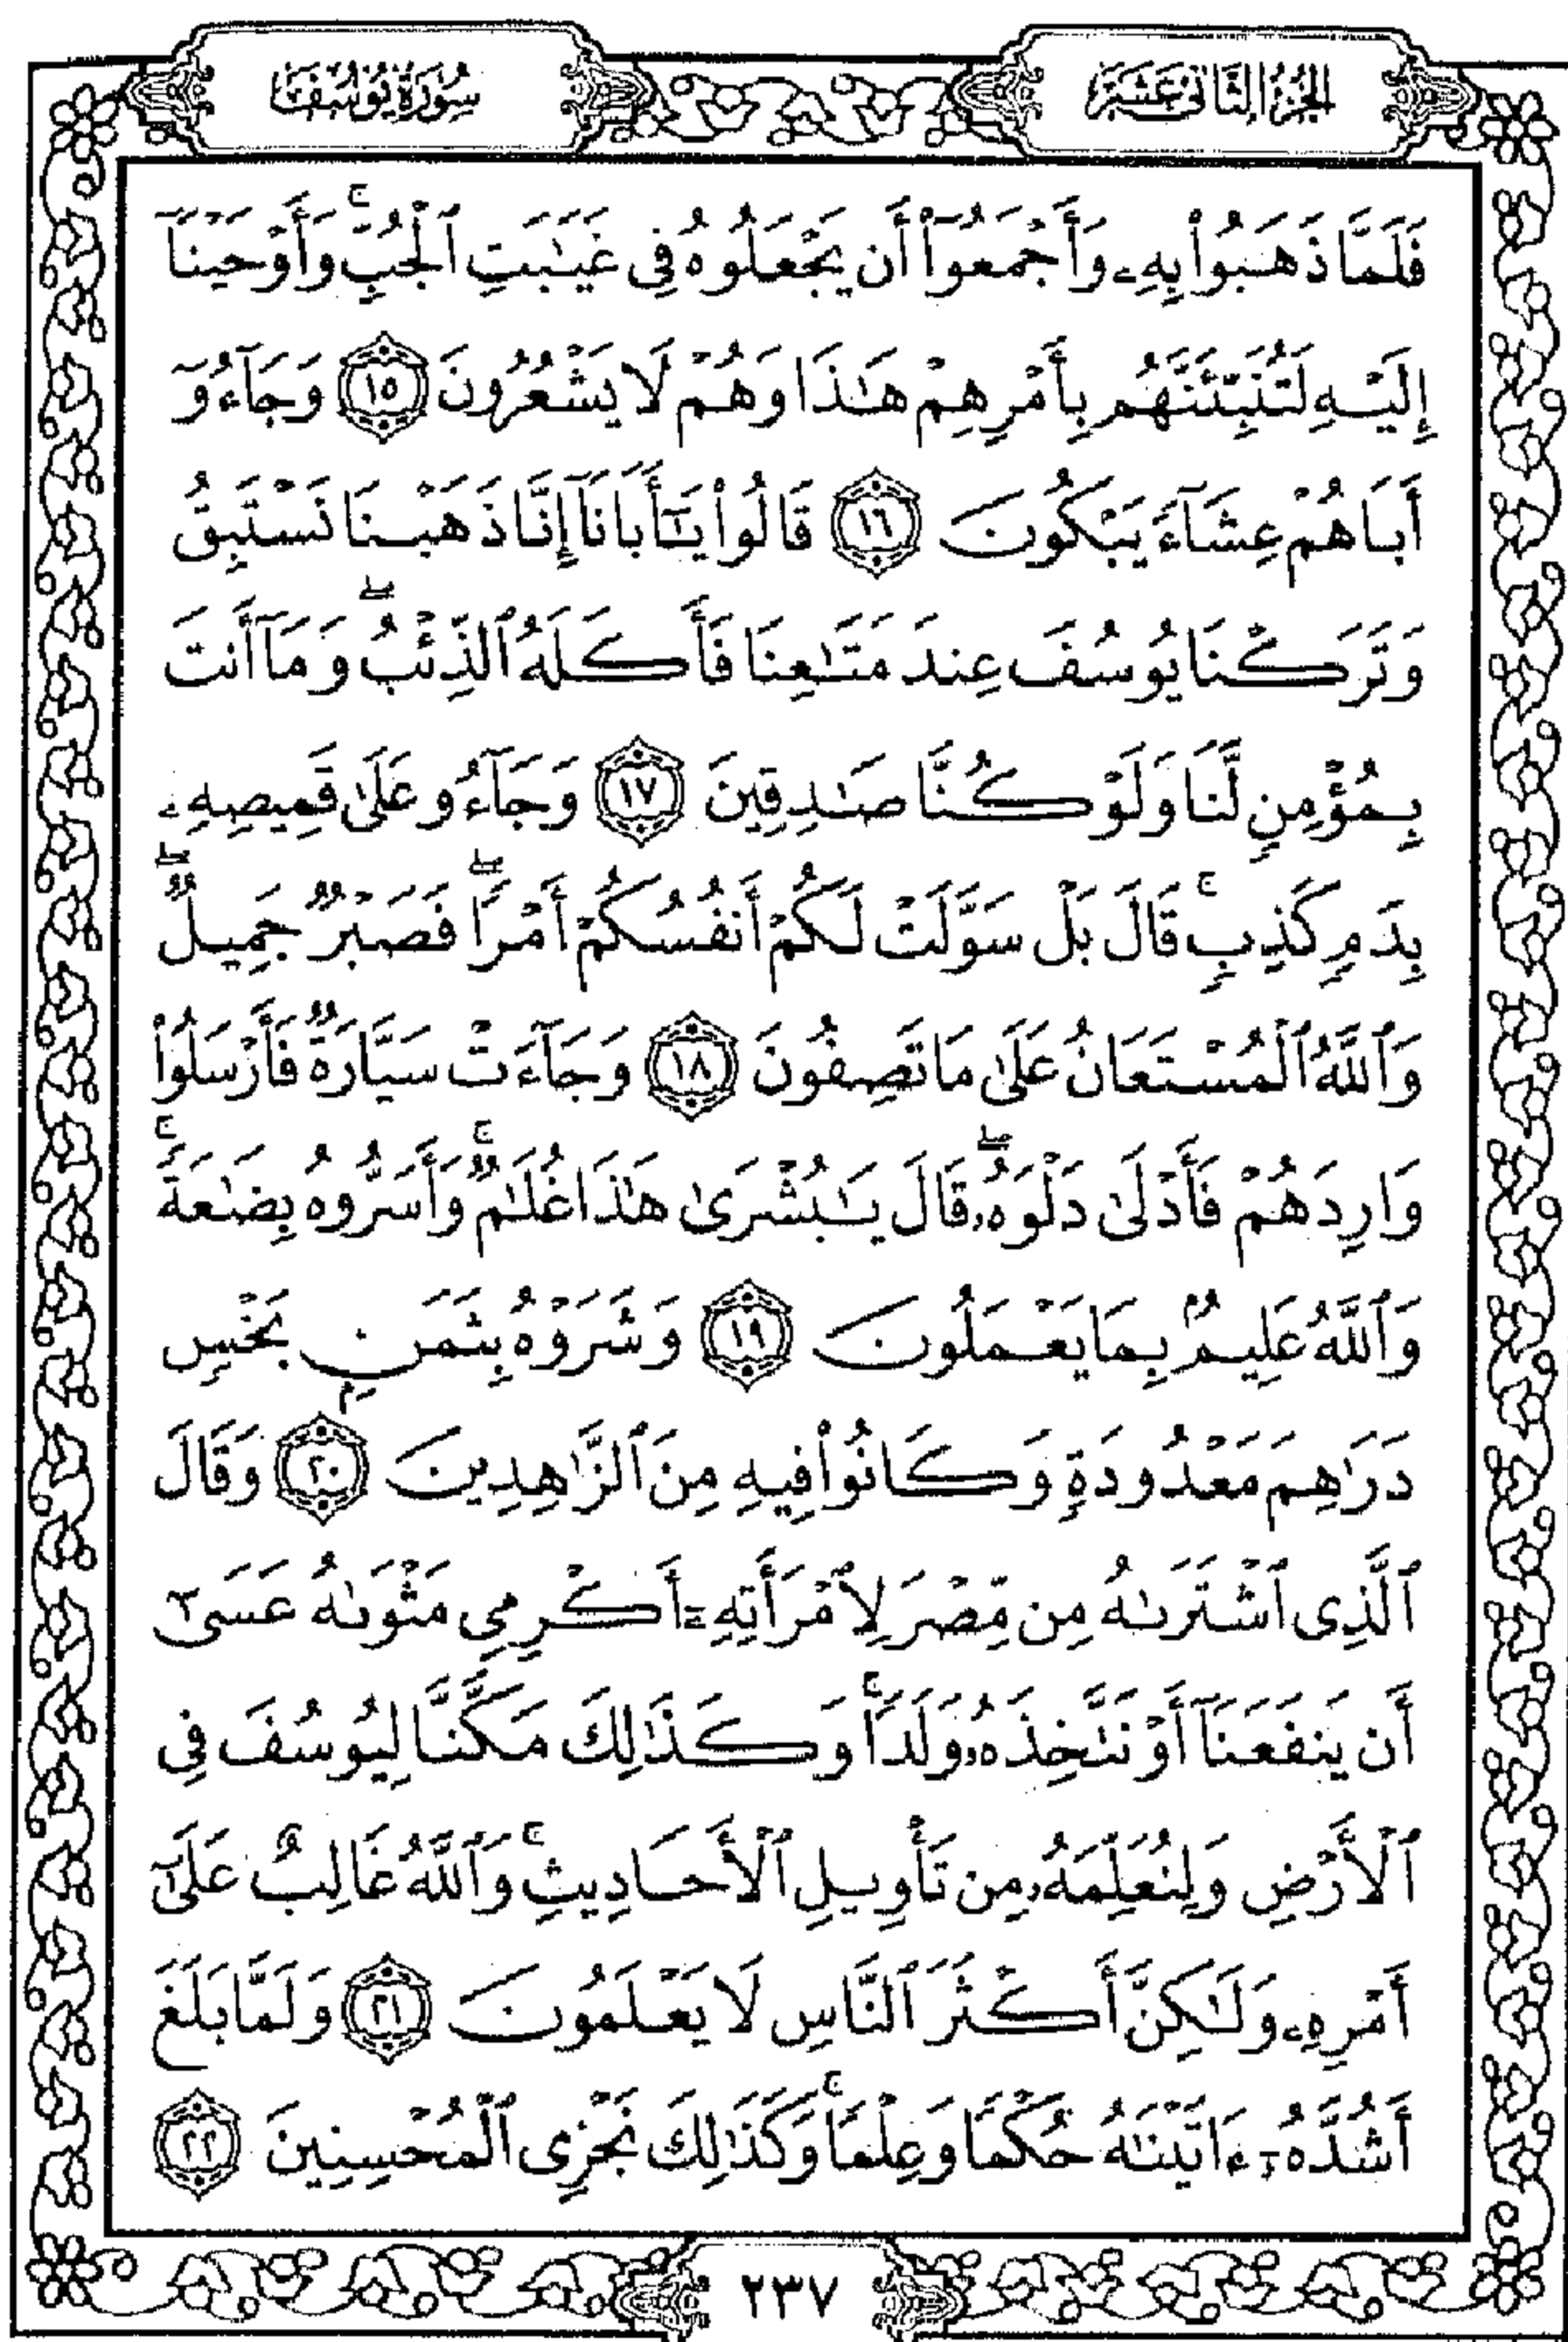 الجزء الثاني عشر
سورة يوسف
فَلَمَّا ذَهَبُوا۟ بِهِۦ وَأَجْمَعُوٓا۟ أَن يَجْعَلُوهُ فِى غَيَـٰبَتِ ٱلْجُبِّ ۚ وَأَوْحَيْنَآ
إِلَيْهِ لَتُنَبِّئَنَّهُم بِأَمْرِهِمْ هَـٰذَا وَهُمْ لَا يَشْعُرُونَ ١٥ وَجَآءُوٓ
أَبَاهُمْ عِشَآءً يَبْكُونَ ١٦ قَالُوا۟ يَـٰٓأَبَانَآ إِنَّا ذَهَبْنَا نَسْتَبِقُ
وَتَرَكْنَا يُوسُفَ عِندَ مَتَـٰعِنَا فَأَكَلَهُ ٱلذِّئْبُ ۖ وَمَآ أَنتَ
بِمُؤْمِنٍ لَّنَا وَلَوْ كُنَّا صَـٰدِقِينَ ١٧ وَجَآءُو عَلَىٰ قَمِيصِهِۦ
بِدَمٍ كَذِبٍ ۚ قَالَ بَلْ سَوَّلَتْ لَكُمْ أَنفُسُكُمْ أَمْرًا ۖ فَصَبْرٌ جَمِيلٌ ۖ
وَٱللَّهُ ٱلْمُسْتَعَانُ عَلَىٰ مَا تَصِفُونَ ١٨ وَجَآءَتْ سَيَّارَةٌ فَأَرْسَلُوا۟
وَارِدَهُمْ فَأَدْلَىٰ دَلْوَهُۥ ۖ قَالَ يَـٰبُشْرَىٰ هَـٰذَا غُلَـٰمٌ ۚ وَأَسَرُّوهُ بِضَـٰعَةً ۚ
وَٱللَّهُ عَلِيمٌۢ بِمَا يَعْمَلُونَ ١٩ وَشَرَوْهُ بِثَمَنٍۭ بَخْسٍ
دَرَٰهِمَ مَعْدُودَةٍ وَكَانُوا۟ فِيهِ مِنَ ٱلزَّٰهِدِينَ ٢٠ وَقَالَ
ٱلَّذِى ٱشْتَرَىٰهُ مِن مِّصْرَ لِٱمْرَأَتِهِۦٓ أَكْرِمِى مَثْوَىٰهُ عَسَىٰٓ
أَن يَنفَعَنَآ أَوْ نَتَّخِذَهُۥ وَلَدًا ۚ وَكَذَٰلِكَ مَكَّنَّا لِيُوسُفَ فِى
ٱلْأَرْضِ وَلِنُعَلِّمَهُۥ مِن تَأْوِيلِ ٱلْأَحَادِيثِ ۚ وَٱللَّهُ غَالِبٌ عَلَىٰٓ
أَمْرِهِۦ وَلَـٰكِنَّ أَكْثَرَ ٱلنَّاسِ لَا يَعْلَمُونَ ٢١ وَلَمَّا بَلَغَ
أَشُدَّهُۥٓ ءَاتَيْنَـٰهُ حُكْمًا وَعِلْمًا ۚ وَكَذَٰلِكَ نَجْزِى ٱلْمُحْسِنِينَ ٢٢
٢٣٧